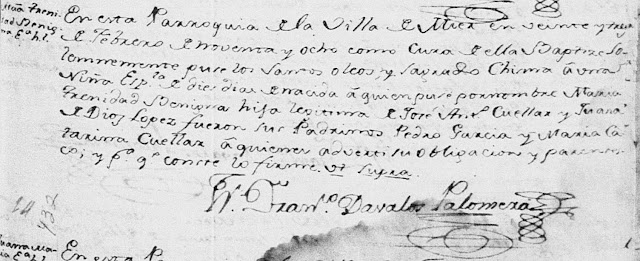 Maria Treni-
dad Benig-
na Eª h.l.
En esta Parroquia de la Villa de Mier en veinte y tres
de Febrero de noventa y ocho como Cura de ella Baptize so-
lemnemente puse los Santos oleos, y sagrado Chisma â una
Niña Espª de diez dias de nacida â quien puse por nombre Maria
Trenidad Benigna hija legitima de José Antº Cuellar y Juana
de Dios Lopez fueron sus Padrinos Pedro Garcia y Maria Ca-
tarina Cuellar â quienes adverti su obligacion y parentes-
co; y pª qº conste lo firme. Ut supra.
Franº Davalos Palomera
14
432
En esta